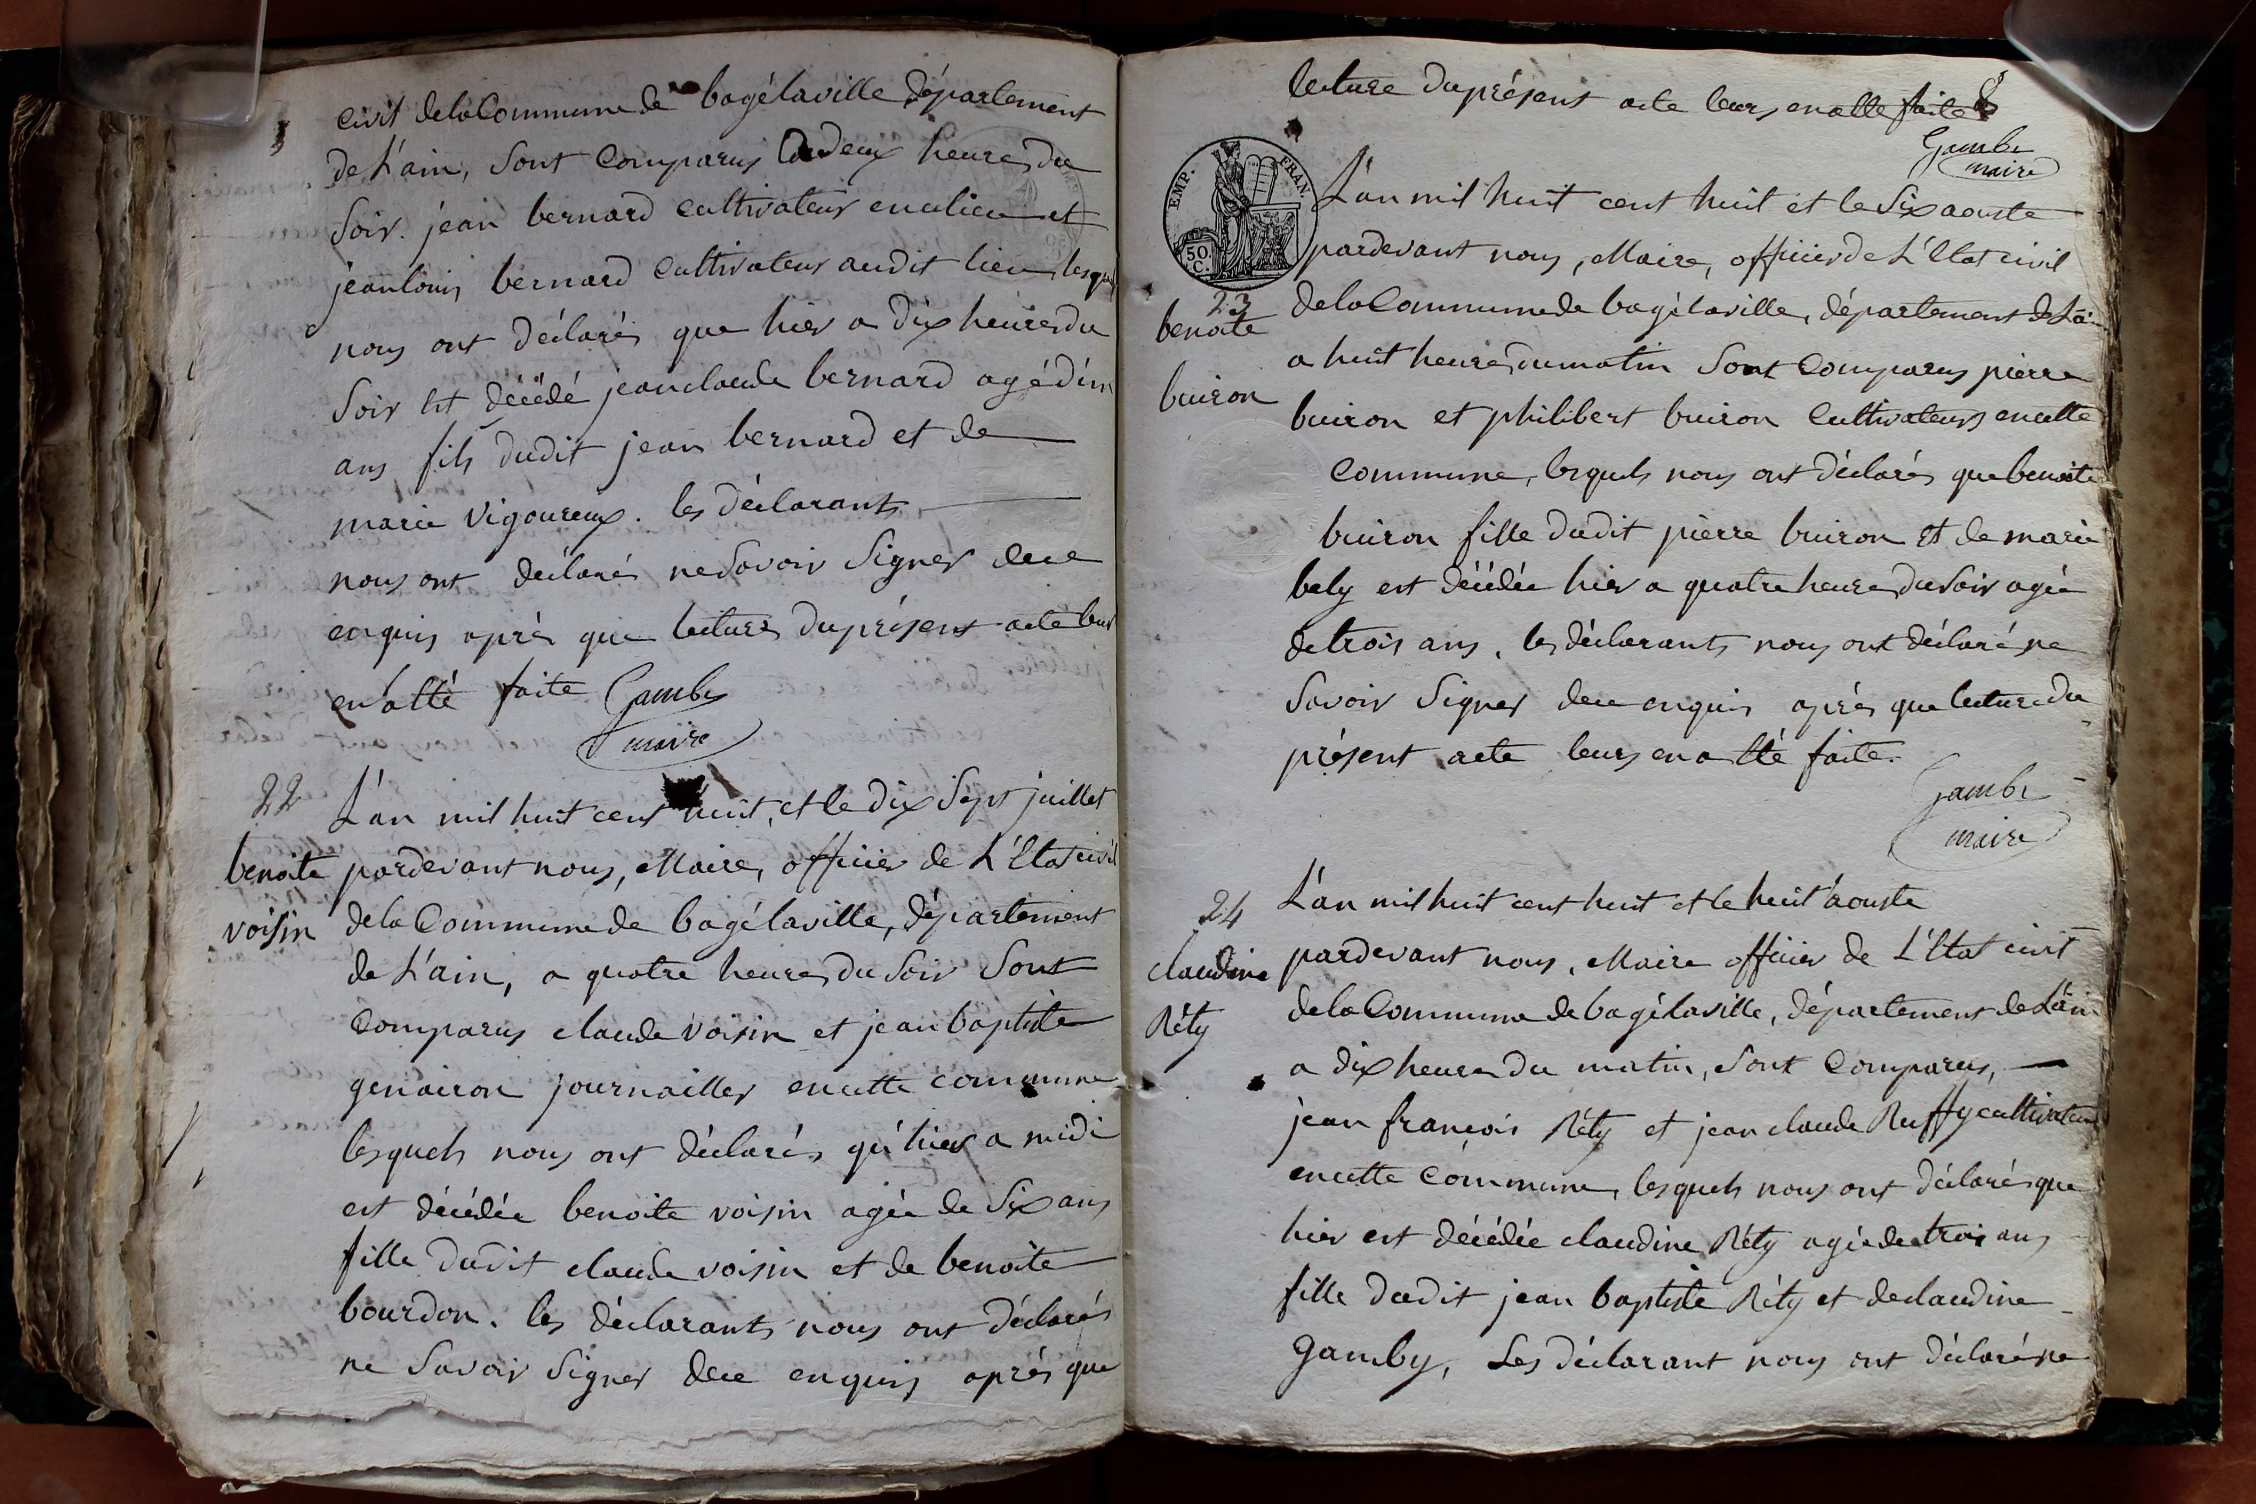 civil de la Commune de bagélaville département
de L'ain, sont comparus a deux heures du
soir. jean bernard cultivateur en ce lieu et
jean louis bernard cultivateur audit lieu lesquels
nous ont déclarés que hier a dix heures du
soir est décédé jean claude bernard agé d'un
ans fils dudit jean bernard et de
marie vigoureux. les déclarants
nous ont déclarés ne savoir signer de ce
enquis après que lecture du présent acte leur
en a été faite Gambi
maire
22
benoite
voisin
L'an mil huit cent huit, et le dix sept juillet
pardevant nous, Maire, officier de L'Etat civil
de la Commune de bagélaville, département
de L'ain, a quatre heures du soir sont
comparus claude voisin et jean baptiste
genairon journaillier en cette commune
lesquels nous ont déclarés qu'hier a midi
est décédée benoite voisin agée de six ans
fille dudit claude voisin et de benoite
bourdon. les déclarants nous ont déclarés
ne savoir signer de ce enquis après que
lecture du présent acte leurs en a été faite
8
Gambi
maire
EMP. FRAN.
50.
C.
23
benoite
buiron
L'an mil huit cent huit et le six aouste
pardevant nous, Maire, officier de L'Etat civil
de la Commune de bagélaville, département de L'ain
a huit heures du matin sont comparus pierre
buiron et philibert buiron cultivateurs en cette
commune, lesquels nous ont déclarés que benoite
buiron fille dudit pierre buiron et de marie
bely est décédée hier a quatre heures du soir agée
de trois ans, les déclarants nous ont déclarés ne
savoir signer de ce enquis après que lecture du
présent acte leurs en a été faite.
Gambi
maire
24
claudine
Réty
L'an mil huit cent huit et le huit aouste
pardevant nous, Maire officier de L'Etat civil
de la Commune de bagélaville, département de L'ain
a dix heures du matin, sont comparus,
jean françois Réty et jean claude Ruffy cultivateurs
en cette commune, lesquels nous ont déclarés que
hier est décédée claudine Réty agée de trois ans
fille dudit jean baptiste Réty et de claudine
Gamby, Les déclarant nous ont déclarés ne